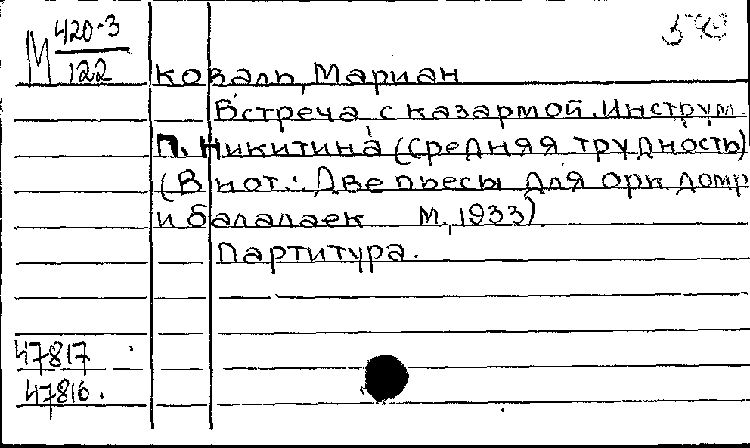 М 420-3
122
Коваль, Мариан
Встреча с казармой. Инструм.
П. Никитина (средняя трудность)
(В нот.: Две пьесы для орк домр
и балалаек М., 1933)
Партитура.
47817
47816.